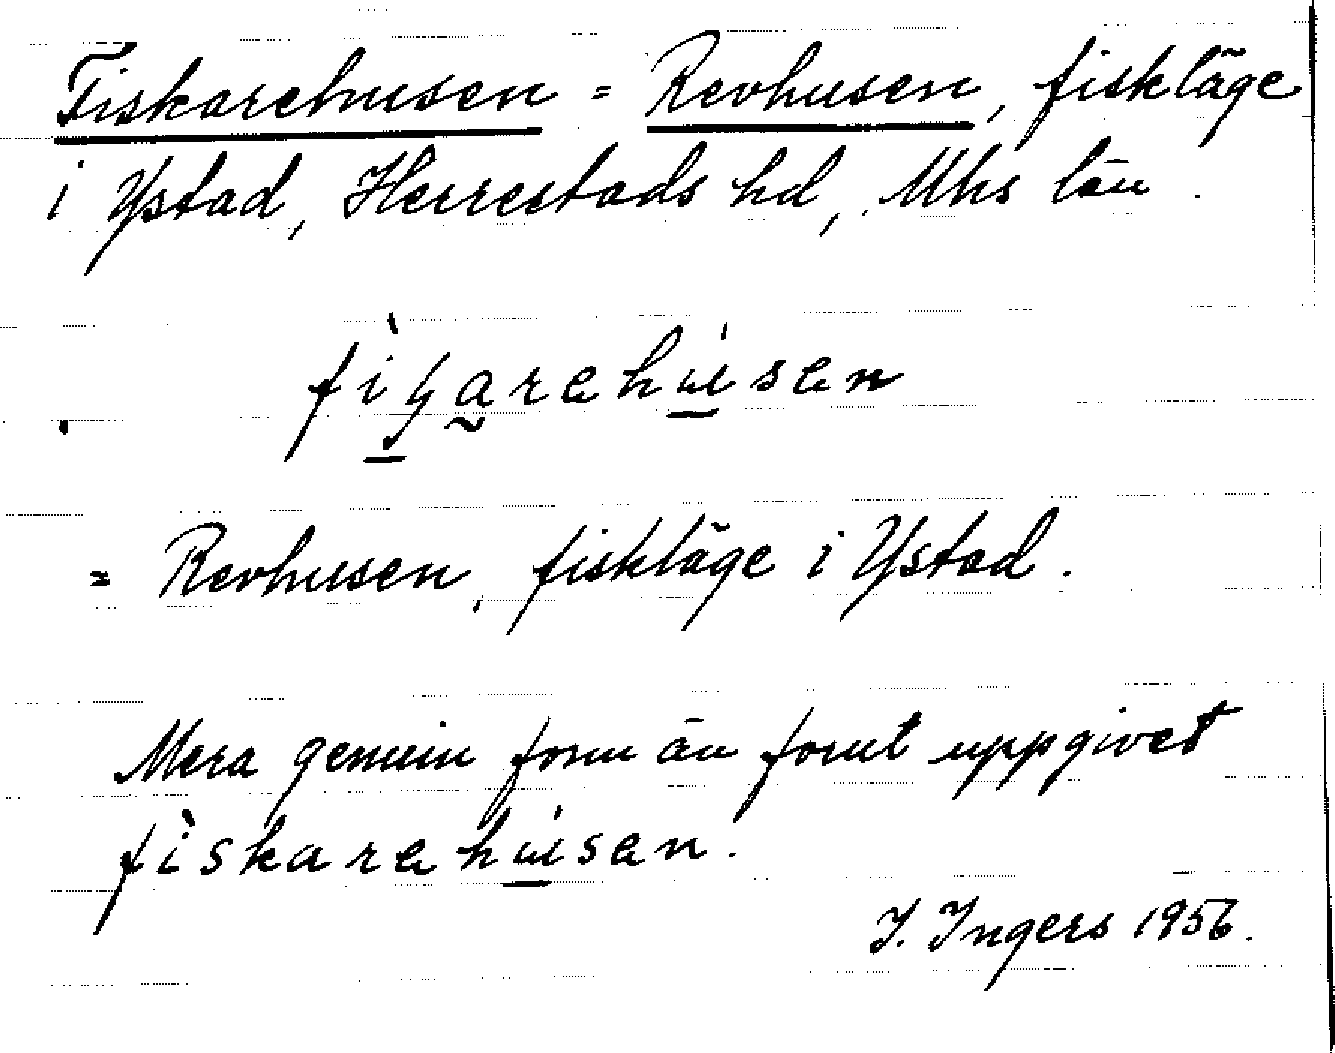 Fiskarehusen = Revhusen, fiskläge
i Ystad, Herrestads hd, Mhs län.
= Revhusen, fiskläge i Ystad.
Mera genuin form än förut uppgivet
fiskarehusen.
I. Ingers 1956.